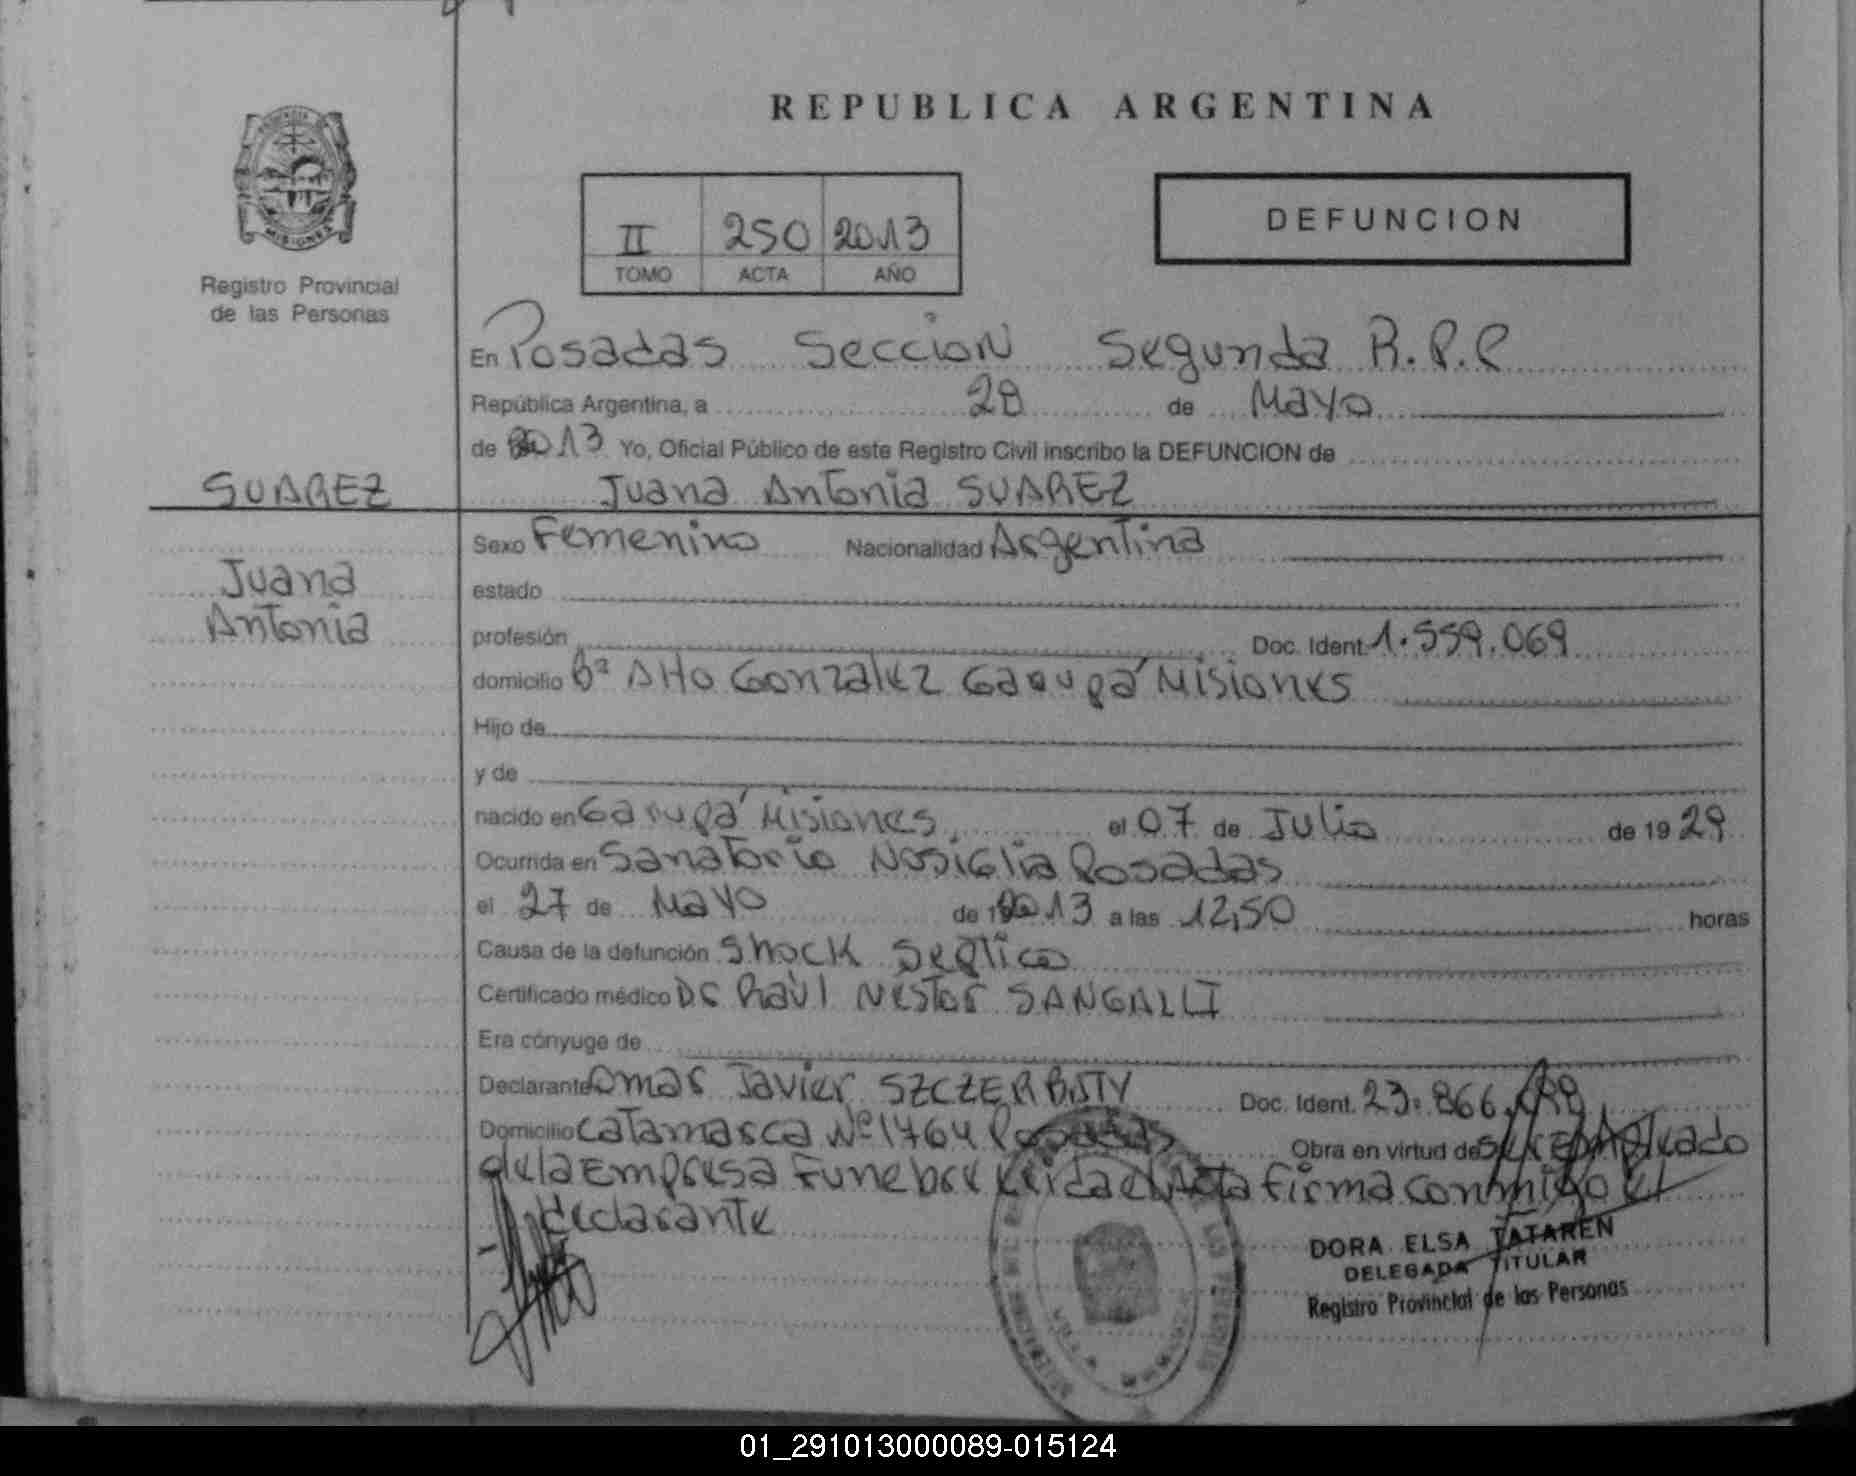 REPUBLICA ARGENTINA
MISIONES
Registro Provincial
de las Personas
II 250 2013
TOMO ACTA AÑO
DEFUNCION
En Posadas Sección Segunda R.P.P
República Argentina, a 28 de Mayo
de 2013 Yo, Oficial Público de este Registro Civil inscribo la DEFUNCION de
SUAREZ
Juana Antonia SUAREZ
Juana
Antonia
Sexo Femenino Nacionalidad Argentina
estado
profesión Doc. Ident. 1.559.069
domicilio Bº Alto Gonzalez Garupá Misiones
Hijo de
y de
nacido en Garupá Misiones el 07 de Julio de 1929
Ocurrida en Sanatorio Nosiglia Posadas
el 27 de Mayo de 2013 a las 12,50 horas
Causa de la defunción Shock Septico
Certificado médico Dr Raúl Nestor SANGALLI
Era cónyuge de
Declarante Omar Javier Doc. Ident. 23.866.
Domicilio Catamarca Nº 1764 Posadas Obra en virtud de ser empleado
de la Empresa Funebre Leida el Acta firma conmigo el
declarante
DORA ELSA TATAREN
DELEGADA TITULAR
Registro Provincial de las Personas
01_291013000089-015124